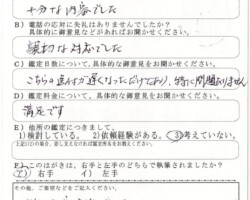 十分な内容でした
B)電話の応対に失礼はありませんでしたか?
具体的に御意見などがあればお聞かせください。
親切な対応でした
C)鑑定日数について、具体的な御意見をお聞かせください。
こちらの返却が遅くなっただけであり、特に問題ありません
D)鑑定料金について、具体的な御意見をお聞かせください。
満足です
E)他所の鑑定につきまして
1)検討している。 2)依頼経験がある。 3)考えていない。
F)このはがきは、右手と左手のどちらで執筆されましたか?
1)右手 2)左手
その他、ご要望などをご記入ください。